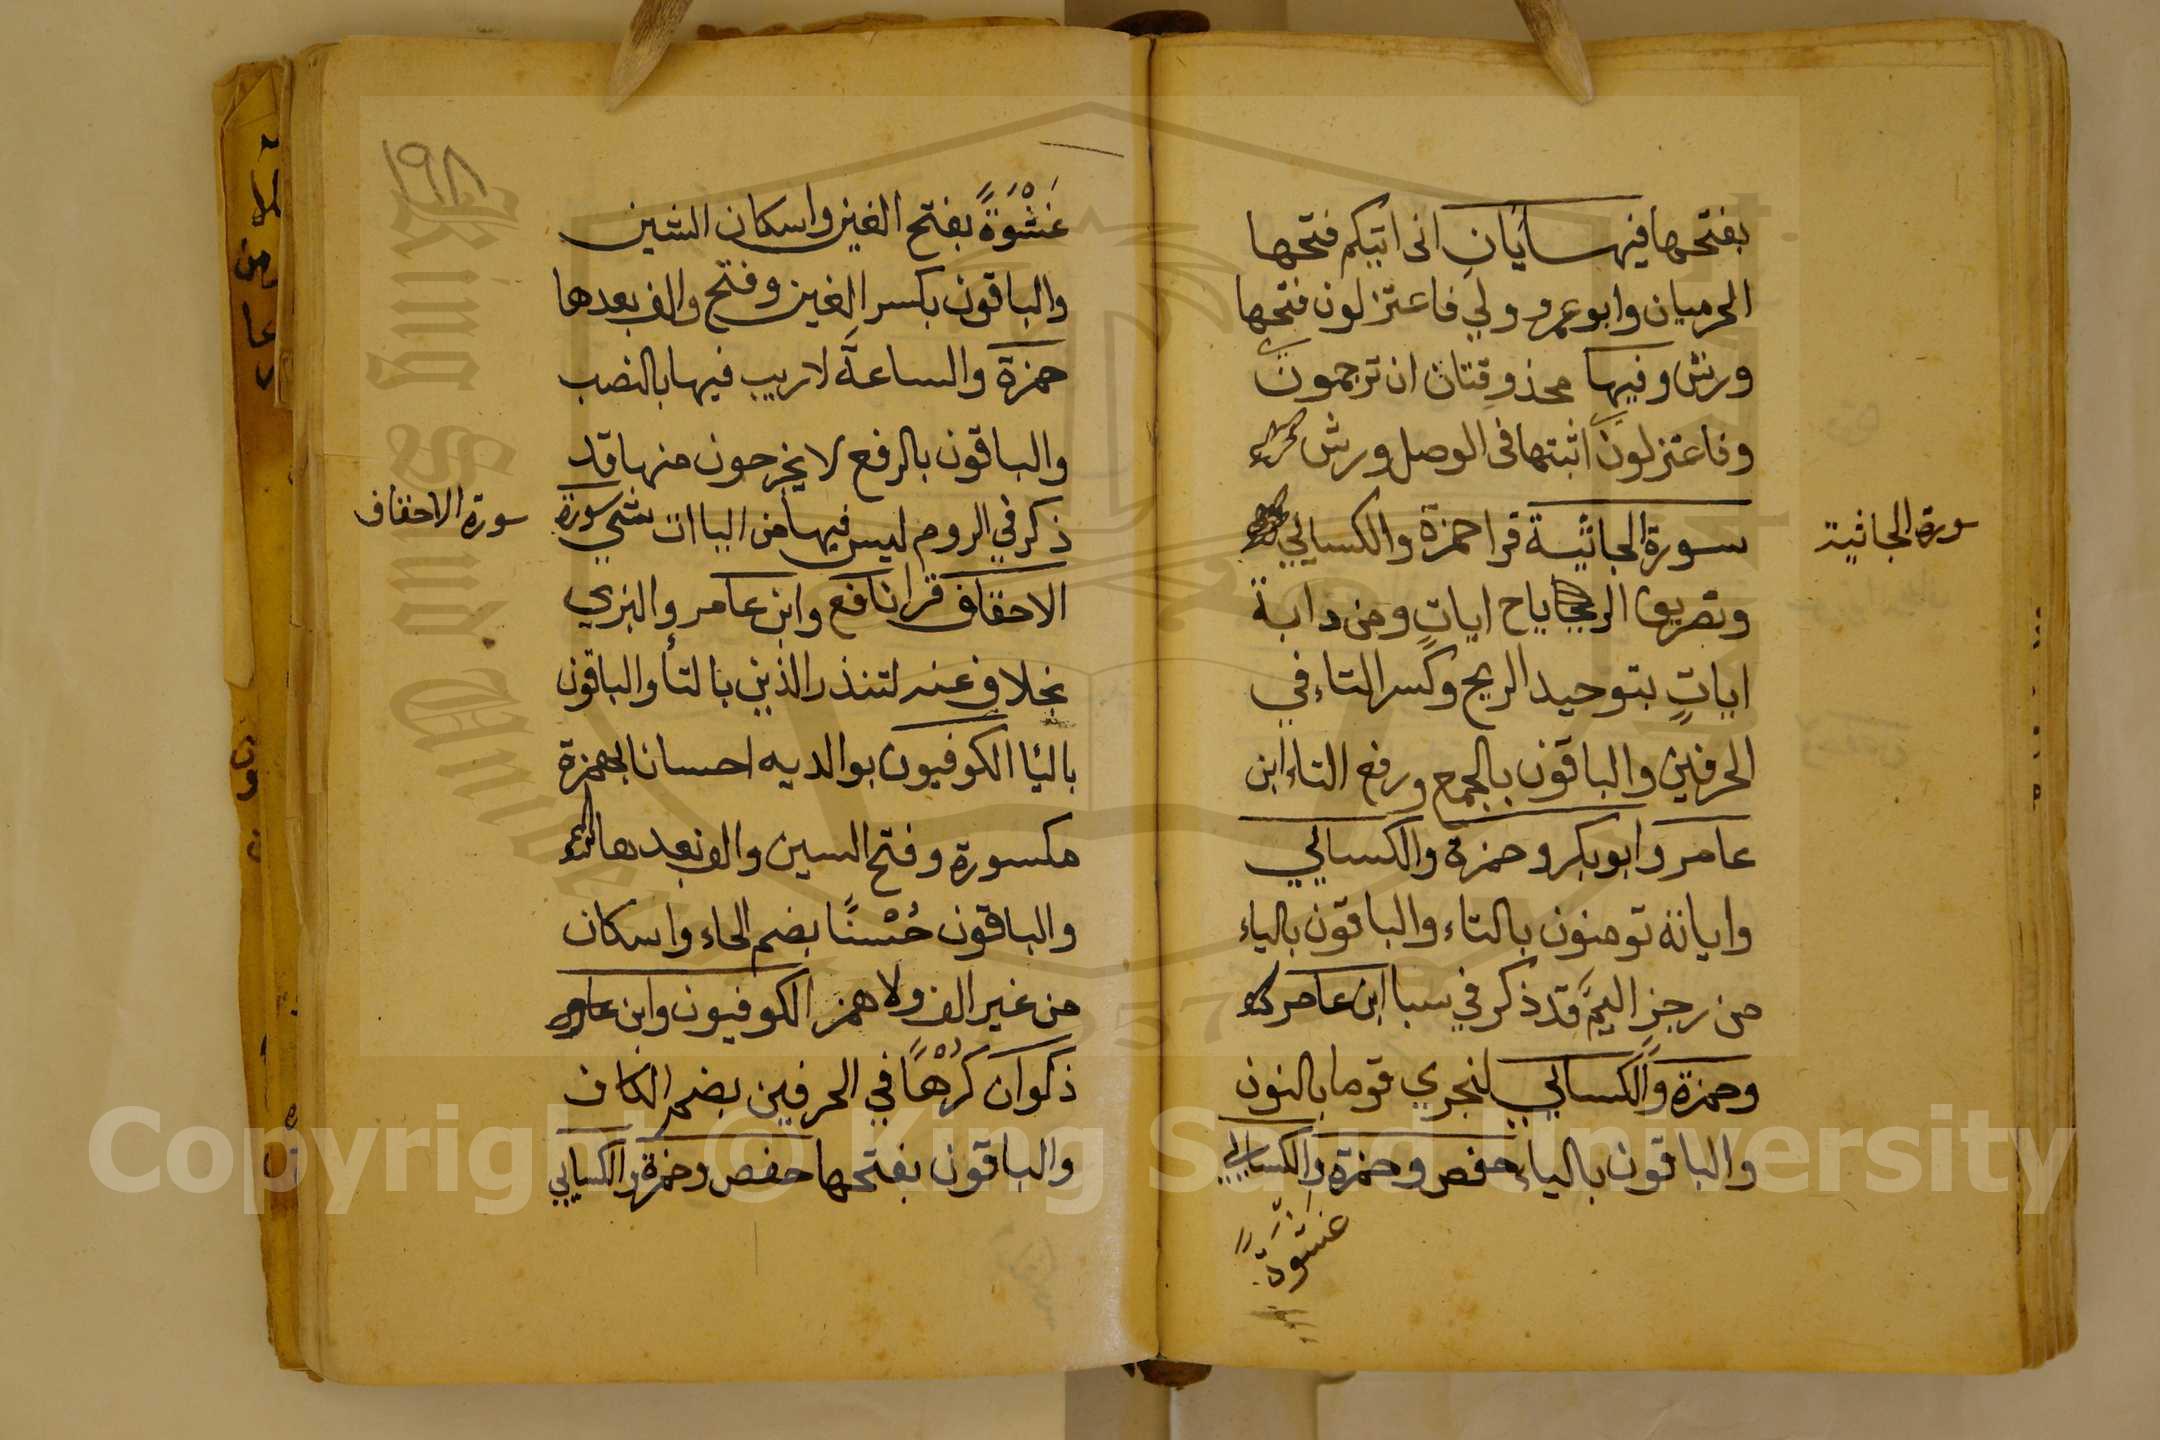 بفتحها فيها يأان انى اتيكم فتحها
الحرميان وابو عمرو ولي فاعتزلون فتحها
ورش وفيها محذوفتان ان ترجمون
وفاعتزلون اثبتها فى الوصل ورش
سورة الجاثية
سورة الجاثية قرا حمزة والكسايي
وتصريف الرياح ايات ومن دابة
ايات بتوحيد الريح وكسر التاء في
الحرفين والباقون بالجمع ورفع التاء ابن
عامر وابوبكر وحمزة والكسايي
واياته تومنون بالتاء والباقون بالياء
من رجز اليم قد ذكر في سبا ابن عامر
وحمزة والكسايي لنجزي قوما بالنون
والباقون بالياء حفص وحمزة والكسايي
غشوة
١٩٨
غَشْوَةً بفتح الغين واسكان الشين
والباقون بكسر الغين وفتح والف بعدها
حمزة والساعةَ لا ريب فيها بالنصب
والباقون بالرفع لا يخرجون منها قد
ذكر في الروم ليس فيها من الياات شي سورة
سورة الاحقاف
الاحقاف قرا نافع وابن عامر والبزي
بخلاف عنه لتنذر الذين بالتأ والباقون
باليا الكوفيون بوالديه احسانا بهمزة
مكسورة وفتح السين والف بعدها
والباقون حُسْنًا بضم الحاء واسكان
من غير الف ولا همز الكوفيون وابن
ذكوان كُرْهًا في الحرفين بضم الكاف
والباقون بفتحها حفص وحمزة والكسايي
King Saud University
1957
Copyright © King Saud University